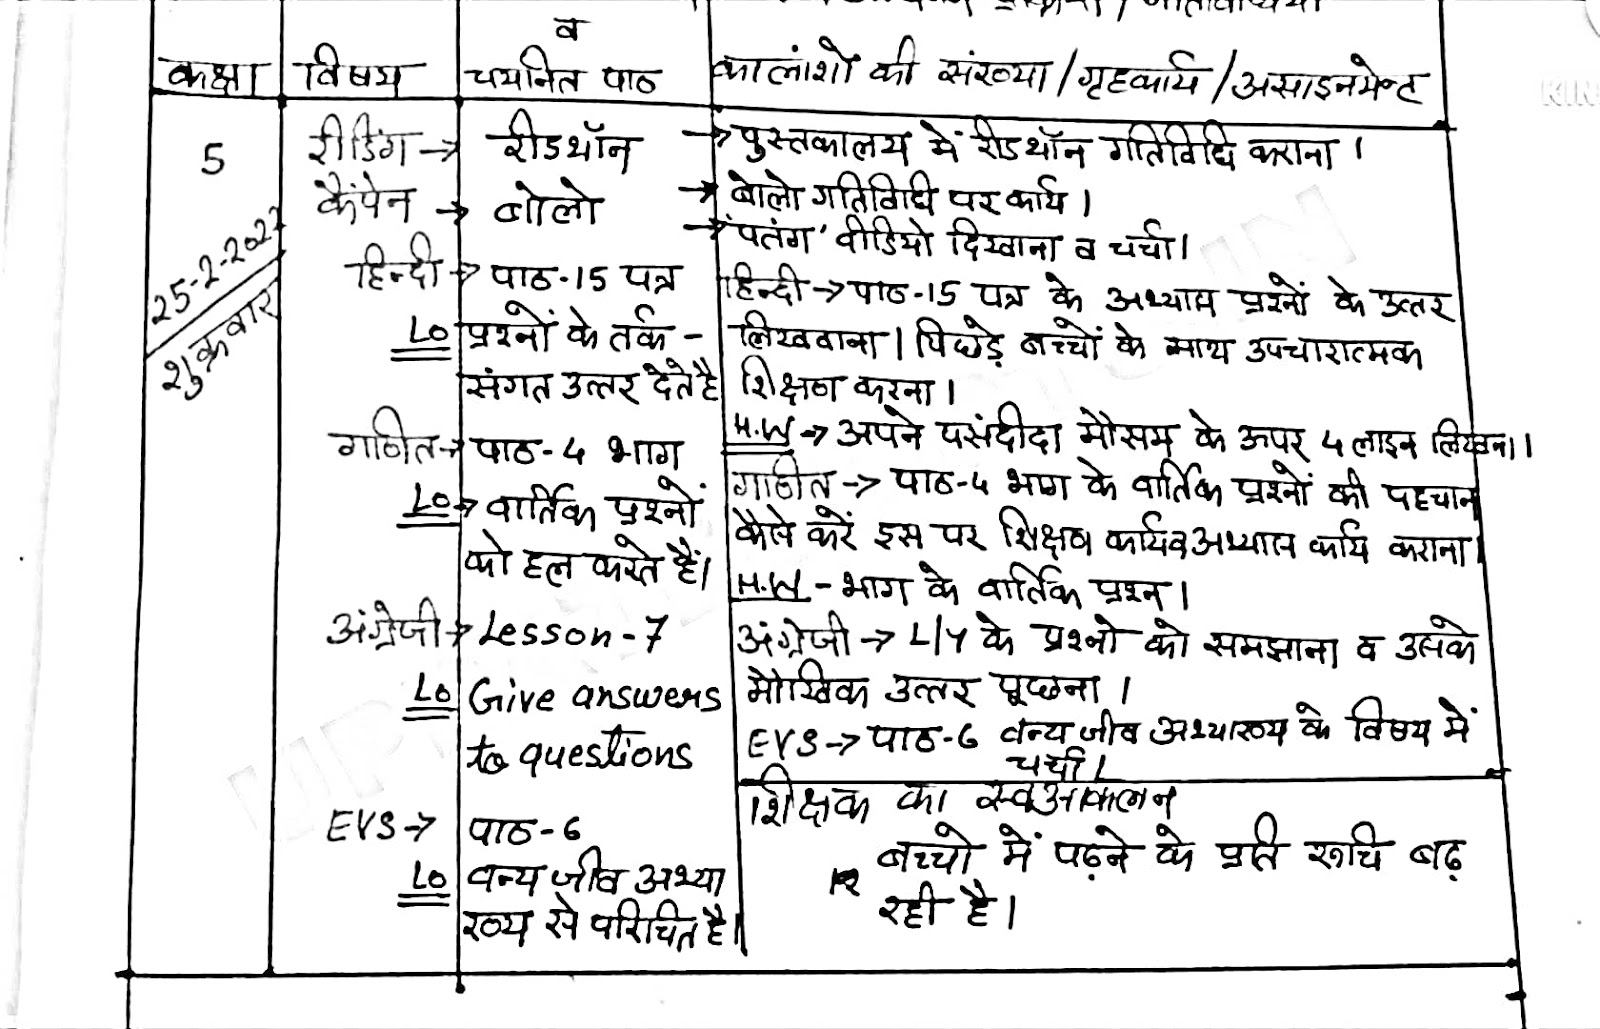 व
कक्षा विषय चयनित पाठ कालांशों की संख्या/गृहकार्य/असाइनमेण्ट
5 रीडिंग → रीडथॉन → पुस्तकालय में रीडथॉन गतिविधि कराना ।
कैंपेन → बोलो → बोलो गतिविधि पर कार्य ।
→ 'पतंग' वीडियो दिखाना व चर्चा।
25-2-2022
शुक्रवार
हिन्दी → पाठ-15 पत्र
LO प्रश्नों के तर्क -
संगत उत्तर देते है
हिन्दी → पाठ-15 पत्र के अभ्यास प्रश्नों के उत्तर
लिखवाना। पिछड़े बच्चों के साथ उपचारात्मक
शिक्षण करना।
H.W → अपने पसंदीदा मौसम के ऊपर 4 लाइन लिखना।
गणित → पाठ-4 भाग
LO → वार्तिक प्रश्नों
को हल करते हैं।
गणित → पाठ-4 भाग के वार्तिक प्रश्नों की पहचान
कैसे करें इस पर शिक्षण कार्य व अभ्यास कार्य कराना।
H.W - भाग के वार्तिक प्रश्न।
अंग्रेजी → Lesson-7
LO Give answers
to questions
अंग्रेजी → L/7 के प्रश्नो को समझाना व उसके
मौखिक उत्तर पूछना ।
EVS → पाठ-6 वन्य जीव अभ्यारण्य के विषय में
चर्चा।
EVS → पाठ-6
LO वन्य जीव अभ्या
रण्य से परिचित है।
शिक्षक का स्वआकलन
बच्चो में पढ़ने के प्रति रूचि बढ़
रही है।